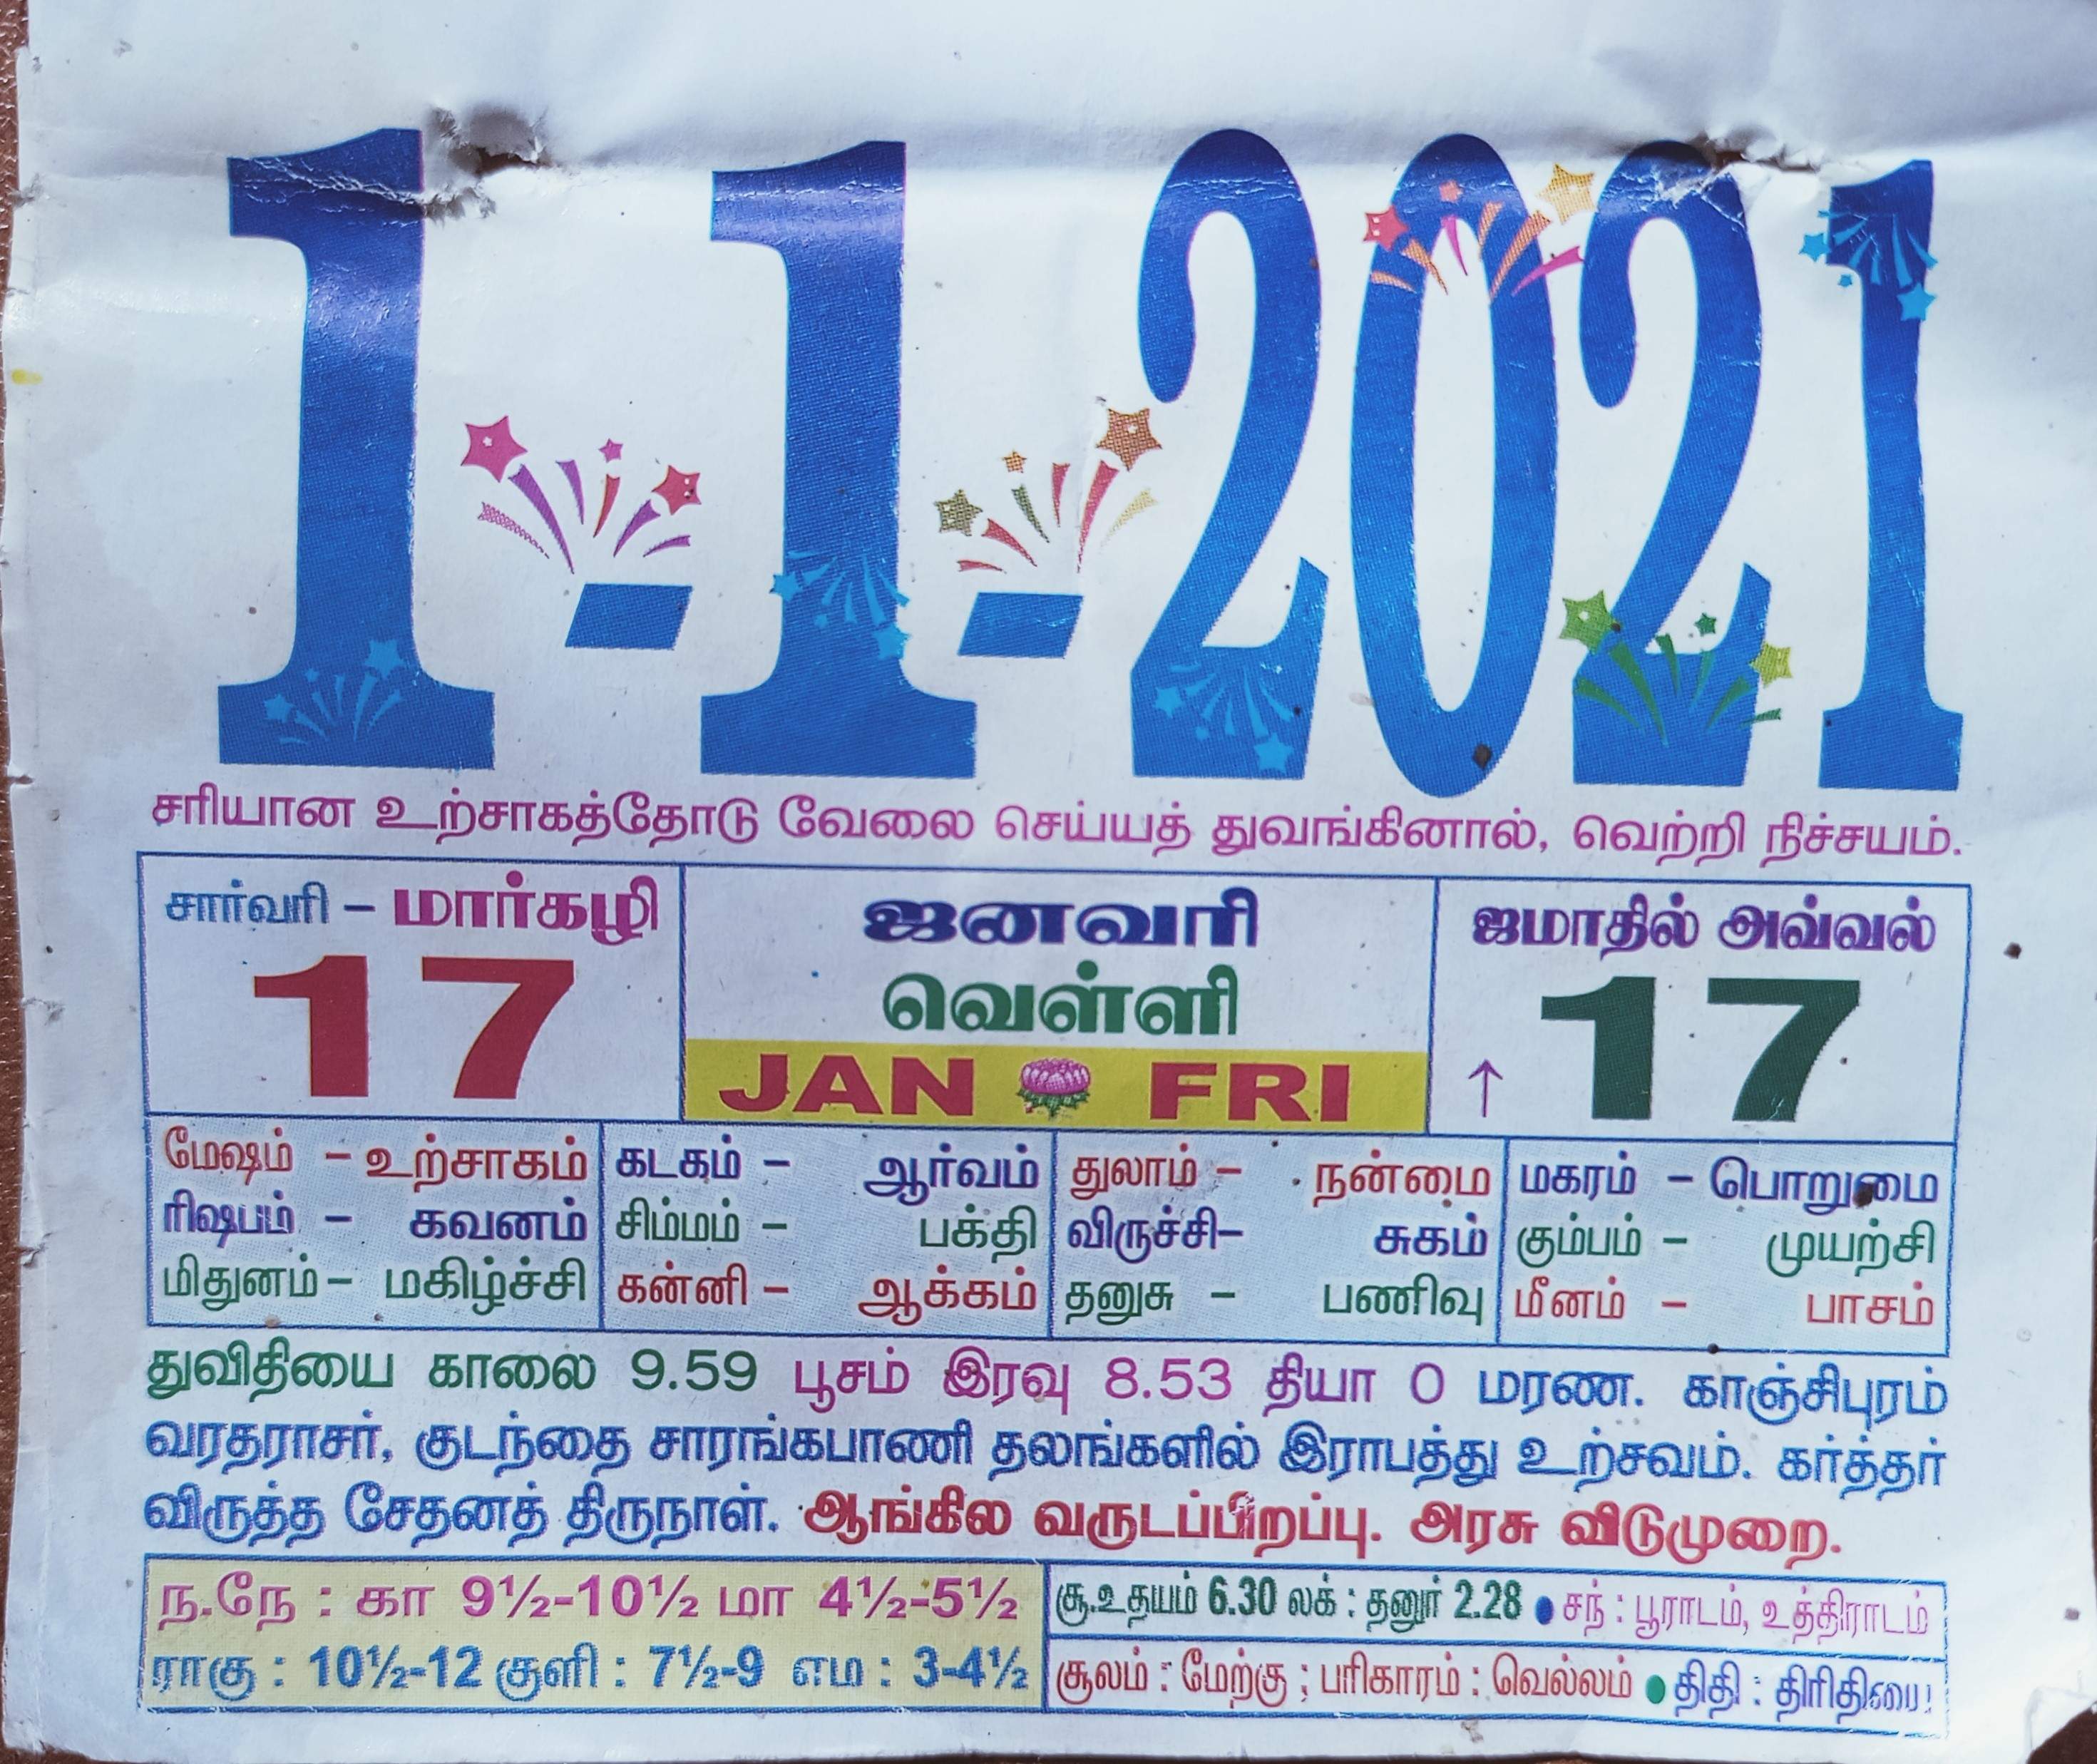 1-1-2021
சரியான உற்சாகத்தோடு வேலை செய்யத் துவங்கினால், வெற்றி நிச்சயம்.
சார்வரி - மார்கழி
17
ஜனவரி
வெள்ளி
JAN FRI
ஜமாதில் அவ்வல்
↑ 17
மேஷம் - உற்சாகம்
ரிஷபம் - கவனம்
மிதுனம் - மகிழ்ச்சி
கடகம் - ஆர்வம்
சிம்மம் - பக்தி
கன்னி - ஆக்கம்
துலாம் - நன்மை
விருச்சி- சுகம்
தனுசு - பணிவு
மகரம் - பொறுமை
கும்பம் - முயற்சி
மீனம் - பாசம்
துவிதியை காலை 9.59 பூசம் இரவு 8.53 தியா 0 மரண. காஞ்சிபுரம்
வரதராசர், குடந்தை சாரங்கபாணி தலங்களில் இராபத்து உற்சவம். கர்த்தர்
விருத்த சேதனத் திருநாள். ஆங்கில வருடப்பிறப்பு. அரசு விடுமுறை.
ந.நே : கா 9½-10½ மா 4½-5½
ராகு : 10½-12 குளி : 7½-9 எம : 3-4½
சூ.உதயம் 6.30 லக் : தனுர் 2.28 ● சந் : பூராடம், உத்திராடம்
சூலம் : மேற்கு ; பரிகாரம் : வெல்லம் ● திதி : திரிதியை